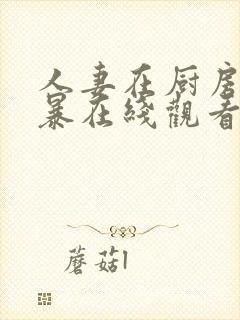 人妻在厨房
暴在线觀看
蘑菇l